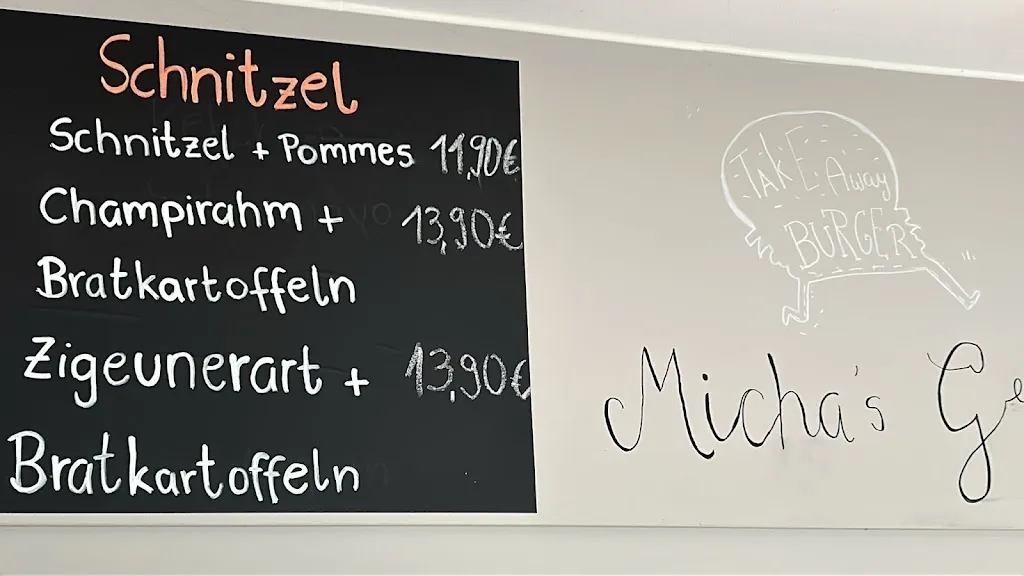 Schnitzel
Schnitzel + Pommes 11,90€
Champirahm + 13,90€
Bratkartoffeln
Zigeunerart + 13,90€
Bratkartoffeln
TAKE AWAY
BURGER
Micha's Ge